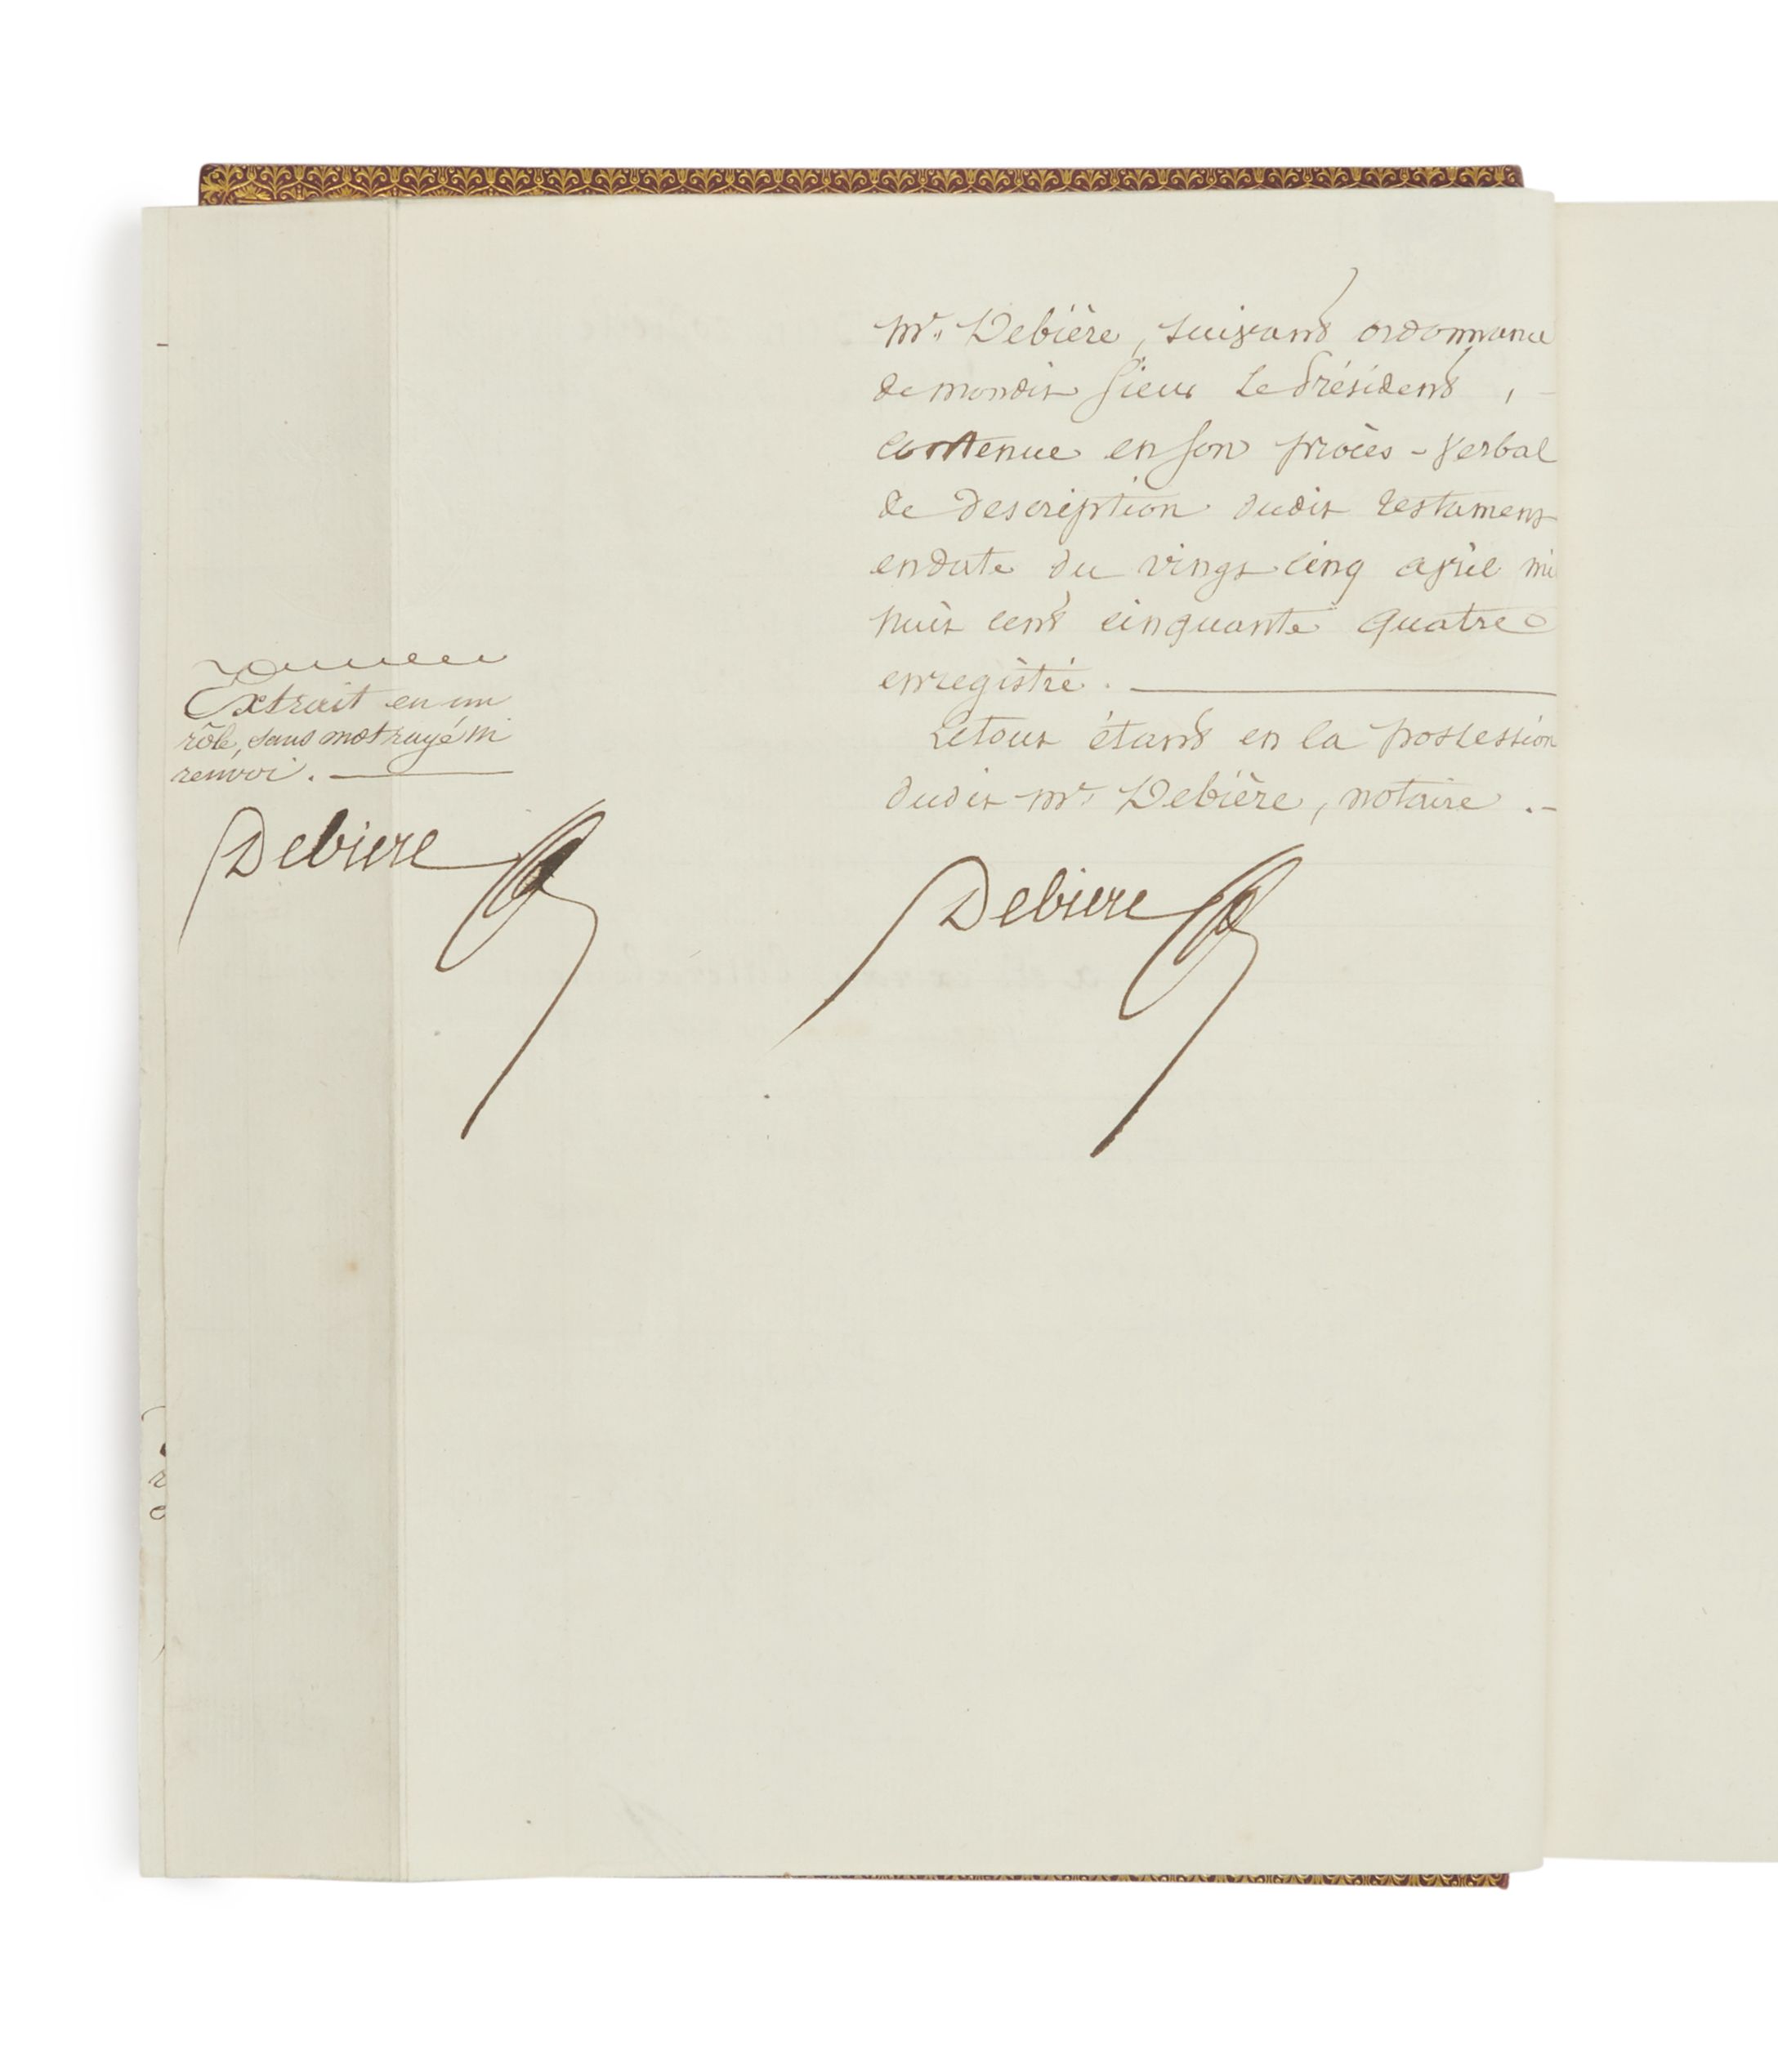 Mr. Debière, suivant ordonnance
de mondit sieur le Président,
contenue en son procès-verbal
de description dudit testament
en date du vingt cinq avril mi
huit cent cinquante quatre
enregistré.
Le tout étant en la possession
dudit Mr. Debière, notaire.-
Debiere
Extrait en un
rôle, sans mot rayé ni
renvoi.
Debiere